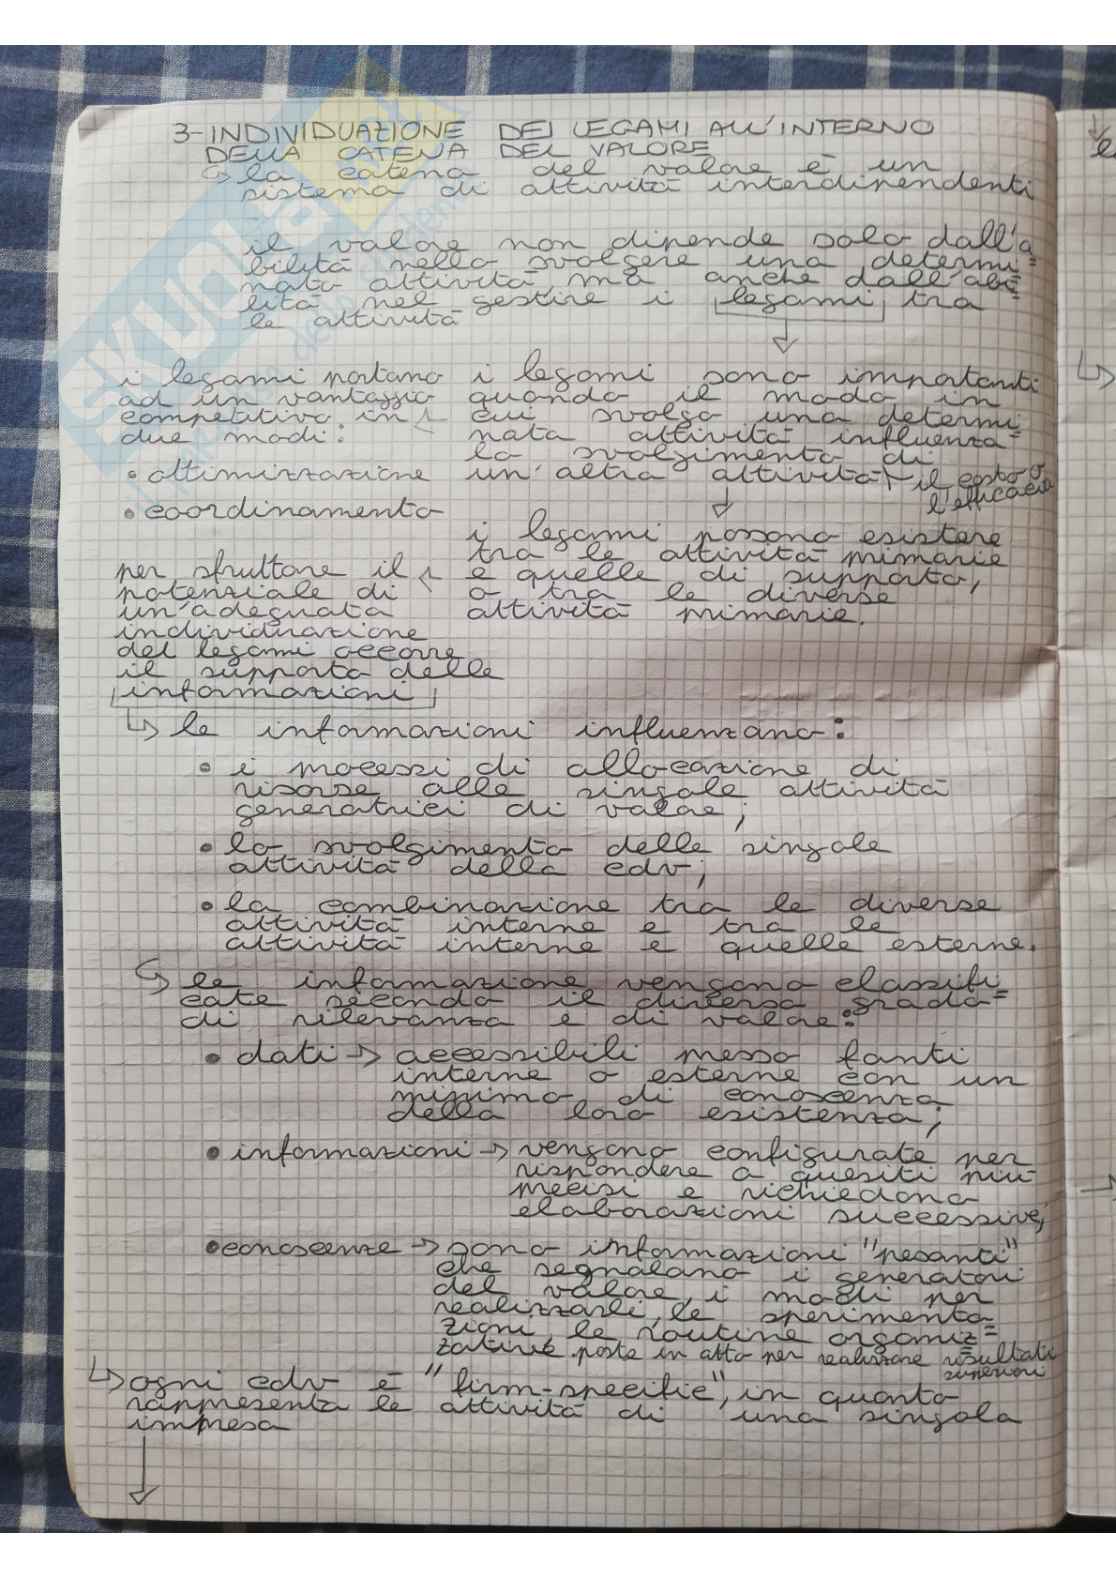 3-INDIVIDUAZIONE DEI LEGAMI ALL'INTERNO
DELLA CATENA DEL VALORE
↳ la catena del valore è un
sistema di attività interdipendenti
il valore non dipende solo dall'a
bilità nello svolgere una determi=
nata attività, ma anche dall'abi=
lità nel gestire i legami tra
le attività
i legami sono importanti
quando il modo in
cui svolgo una determi
nata attività influenza=
lo svolgimento di
un'altra attività → il costo o
l'efficacia
i legami portano
ad un vantaggio
competitivo in
due modi:
• ottimizzazione
• coordinamento
i legami possono esistere
tra le attività primarie
e quelle di supporto,
o tra le diverse
attività primarie.
per sfruttare il
potenziale di
un'adeguata
individuazione
dei legami occorre
il supporto delle
informazioni
↳ le informazioni influenzano:
• i processi di allocazione di
risorse alle singole attività
generatrici di valore;
• lo svolgimento delle singole
attività della cdv;
• la combinazione tra le diverse
attività interne e tra le
attività interne e quelle esterne.
↳ le informazione vengono classifi
cate secondo il diverso grado=
di rilevanza e di valore:
• dati → accessibili presso fonti
interne o esterne con un
minimo di conoscenza
della loro esistenza;
• informazioni → vengono configurate per
rispondere a quesiti più
precisi e richiedono
elaborazioni successive;
• conoscenze → sono informazioni "pesanti"
che segnalano i generatori
del valore, i modi per
realizzarli, le sperimenta
zioni, le routine organiz=
zative poste in atto per realizzare risultati
superiori
↳ ogni cdv è "firm-specific", in quanto
rappresenta le attività di una singola
impresa